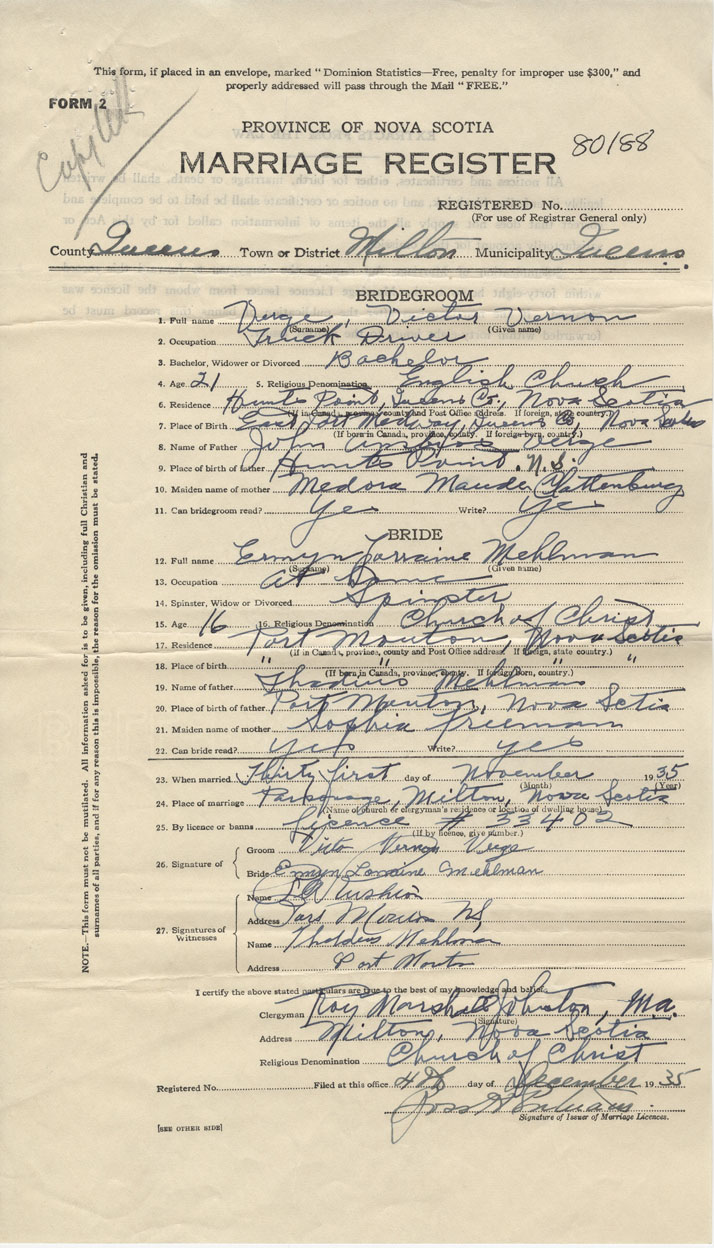 This form, if placed in an envelope, marked "Dominion Statistics—Free, penalty for improper use $300," and
properly addressed will pass through the Mail "FREE."
FORM 2
PROVINCE OF NOVA SCOTIA
80188
MARRIAGE REGISTER
REGISTERED No.
(For use of Registrar General only)
County Queens Town or District Milton Municipality Queens.
BRIDEGROOM
1. Full name Verge, Victor Vernon
(Surname) (Given name)
2. Occupation Truck Driver
3. Bachelor, Widower or Divorced Bachelor
4. Age 21 5. Religious Denomination English Church
6. Residence Hunts Point, Queens Co., Nova Scotia
(If in Canada, province, county and Post Office address. If foreign, state country.)
7. Place of Birth East Port Medway, Queens Co, Nova Scotia
(If born in Canada, province, county. If foreign born, country.)
8. Name of Father John Verge
9. Place of birth of father Hunts Point, N.S.
10. Maiden name of mother Medora Maude Chattenburg
11. Can bridegroom read? Yes Write? Yes
BRIDE
12. Full name Ermyn Lorraine Mehlman
(Surname) (Given name)
13. Occupation at Home
14. Spinster, Widow or Divorced Spinster
15. Age 16 16. Religious Denomination Church of Christ
17. Residence Port Mouton, Nova Scotia
(If in Canada, province, county and Post Office address. If foreign, state country.)
18. Place of birth " " " "
(If born in Canada, province, county. If foreign born, country.)
19. Name of father Thadius Mehlman
20. Place of birth of father Port Mouton, Nova Scotia
21. Maiden name of mother Sophia Freeman
22. Can bride read? Yes Write? yes
23. When married Thirty first day of November 1935
(Month) (Year)
24. Place of marriage Parsonage, Milton, Nova Scotia
(Name of church or clergyman's residence or location of dwelling house)
25. By licence or banns Licence # 33402
(If by licence, give number.)
26. Signature of
Groom Victor Vernon Verge
Bride Ermyn Lorraine Mehlman
27. Signatures of Witnesses
Name
Address Port Mouton NS
Name Thaddius Mehlman
Address Port Mouton
I certify the above stated particulars are true to the best of my knowledge and belief.
Clergyman Roy Marshall Johnston, M.A.
(Signature)
Address Milton, Nova Scotia
Religious Denomination Church of Christ
Registered No. Filed at this office 4th day of December 1935
Signature of Issuer of Marriage Licences.
[SEE OTHER SIDE]
NOTE.—This form must not be mutilated. All information asked for is to be given, including full Christian and
surnames of all parties, and if for any reason this is impossible, the reason for the omission must be stated.